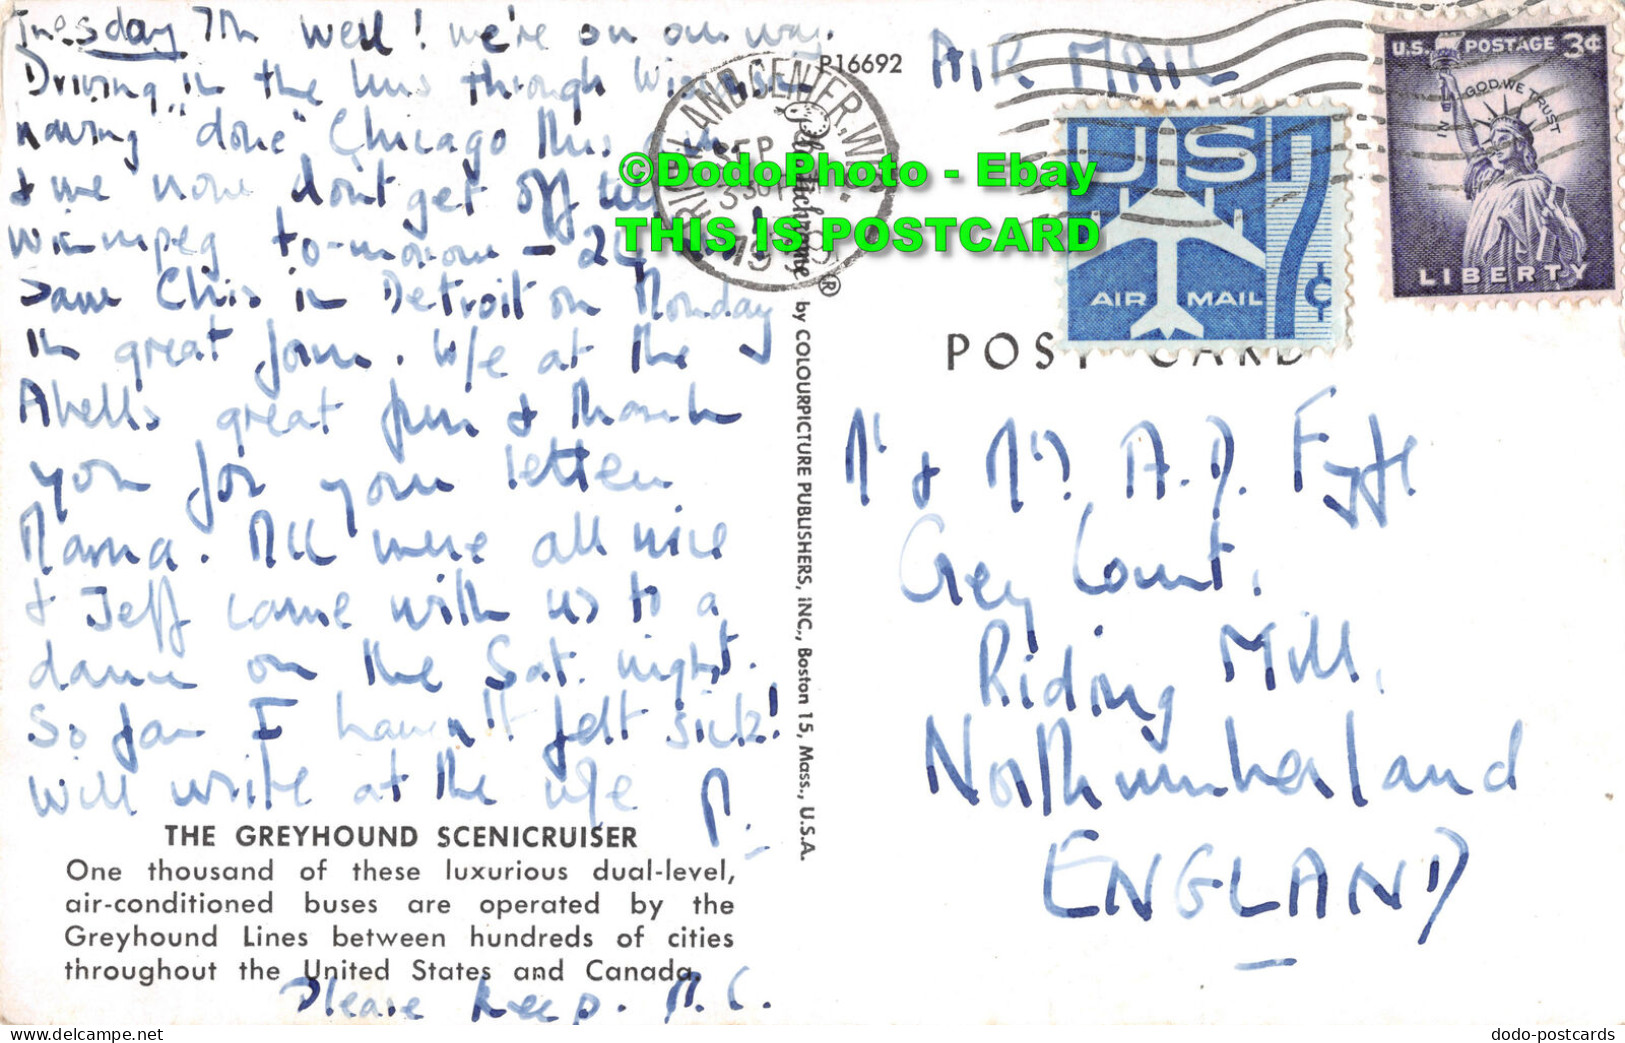 Tuesday 7th Well! we're on our way.
Driving in the bus through
having "done" Chicago this
& we now don't get off till
Winnipeg to-morrow - 24
Saw Chris in Detroit on Monday
in great form. W/e at the
Abells great fun & thank
you for your letter
Mama. All were all nice
& Jeff came with us to a
dance on the Sat. night.
So far I haven't felt sick!
Will write at the w/e
P.
THE GREYHOUND SCENICRUISER
One thousand of these luxurious dual-level,
air-conditioned buses are operated by the
Greyhound Lines between hundreds of cities
throughout the United States and Canada.
Please keep.
P16692
by COLOURPICTURE PUBLISHERS, INC., Boston 15, Mass., U.S.A.
SEP
©DodoPhoto - Ebay
THIS IS POSTCARD
AIR MAIL
US
AIR MAIL 7¢
U.S. POSTAGE 3¢
IN GOD WE TRUST
LIBERTY
POST CARD
Mr & Mrs A.D. Fyfe
Grey Court,
Riding Mill,
Northumberland
ENGLAND
dodo-postcards